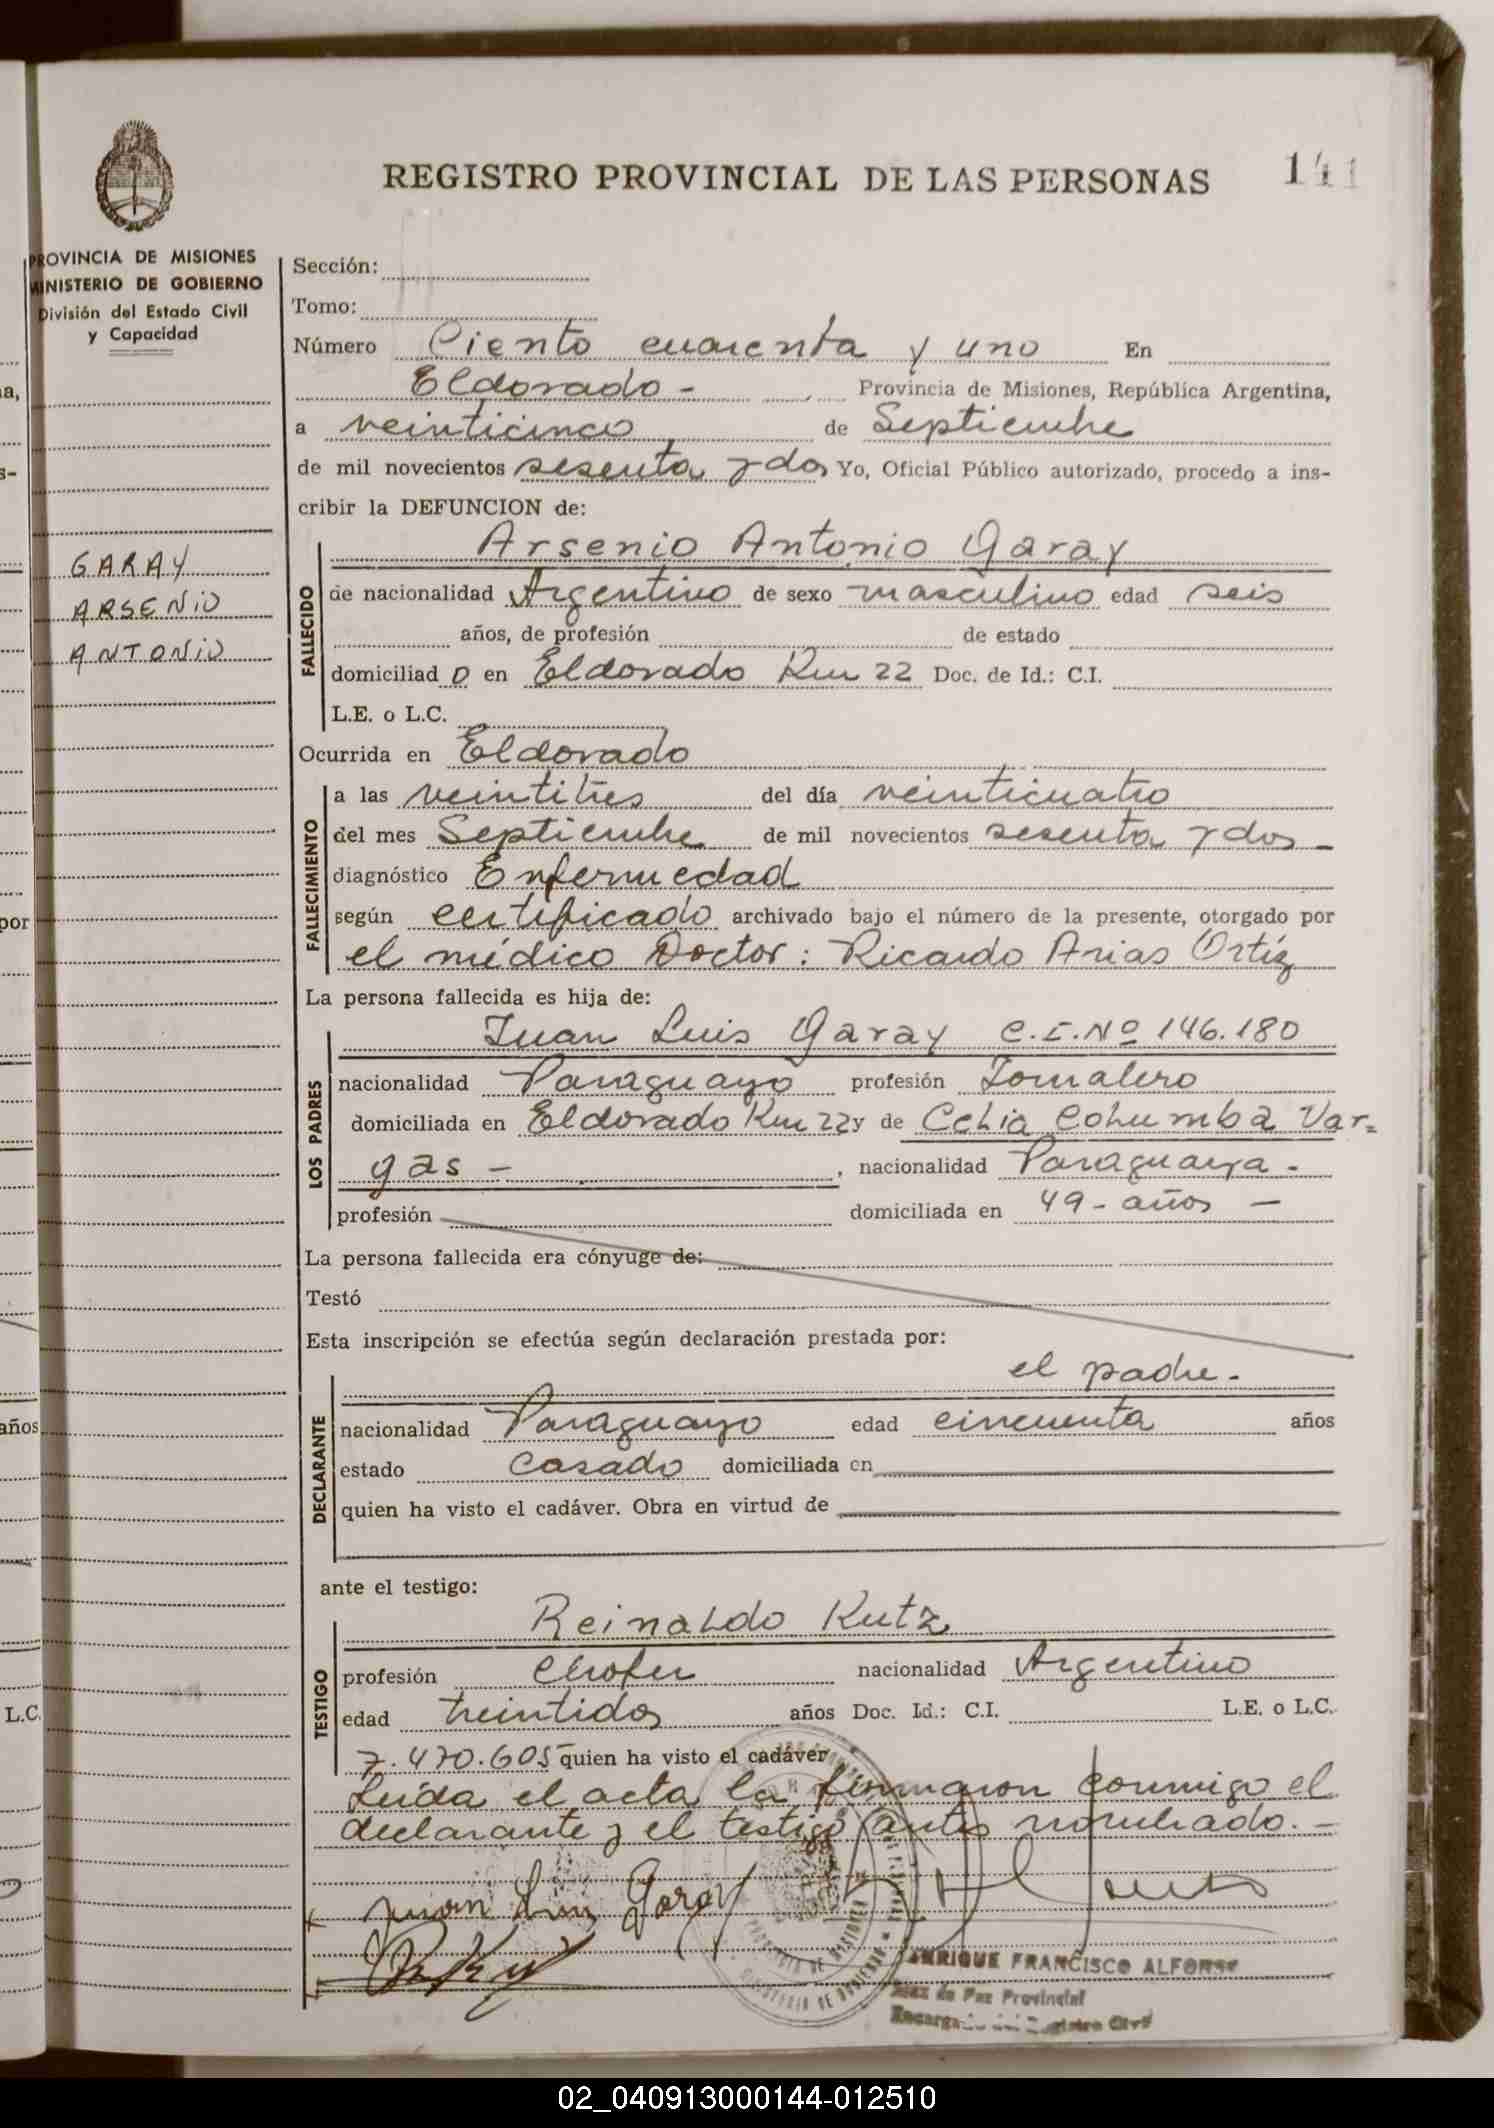 REGISTRO PROVINCIAL DE LAS PERSONAS 141
PROVINCIA DE MISIONES
MINISTERIO DE GOBIERNO
División del Estado Civil
y Capacidad
Sección:
Tomo:
Número Ciento cuarenta y uno En
Eldorado - Provincia de Misiones, República Argentina,
a veinticinco de Septiembre
de mil novecientos sesenta y dos Yo, Oficial Público autorizado, procedo a ins-
cribir la DEFUNCION de:
GARAY
ARSENIO
ANTONIO
FALLECIDO
Arsenio Antonio Garay
de nacionalidad Argentino de sexo masculino edad seis
años, de profesión de estado
domiciliad o en Eldorado Km 22 Doc. de Id.: C.I.
L.E. o L.C.
Ocurrida en Eldorado
FALLECIMIENTO
a las veintitres del día veinticuatro
del mes Septiembre de mil novecientos sesenta y dos -
diagnóstico Enfermedad
según certificado archivado bajo el número de la presente, otorgado por
el médico Doctor: Ricardo Arias Ortíz
La persona fallecida es hija de:
LOS PADRES
Juan Luis Garay C.I.Nº 146.180
nacionalidad Paraguayo profesión Jornalero
domiciliada en Eldorado Km 22 y de Celia Columba Var=
gas - , nacionalidad Paraguaya -
profesión domiciliada en 49 - años -
La persona fallecida era cónyuge de:
Testó
Esta inscripción se efectúa según declaración prestada por:
DECLARANTE
el padre.
nacionalidad Paraguayo edad cincuenta años
estado Casado domiciliada en
quien ha visto el cadáver. Obra en virtud de
ante el testigo:
TESTIGO
Reinaldo Kutz
profesión Chofer nacionalidad Argentino
edad treintidos años Doc. Id.: C.I. L.E. o L.C.
7.470.605 quien ha visto el cadáver
Leída el acta la firmaron conmigo el
declarante y el testigo antes nombrado. -
Juan Luis Garay
PROVINCIA DE MISIONES
MINISTERIO DE GOBIERNO
ENRIQUE FRANCISCO ALFONSO
Juez de Paz Provincial
Registro Civil
a,
s-
por
años
L.C.
02_040913000144-012510